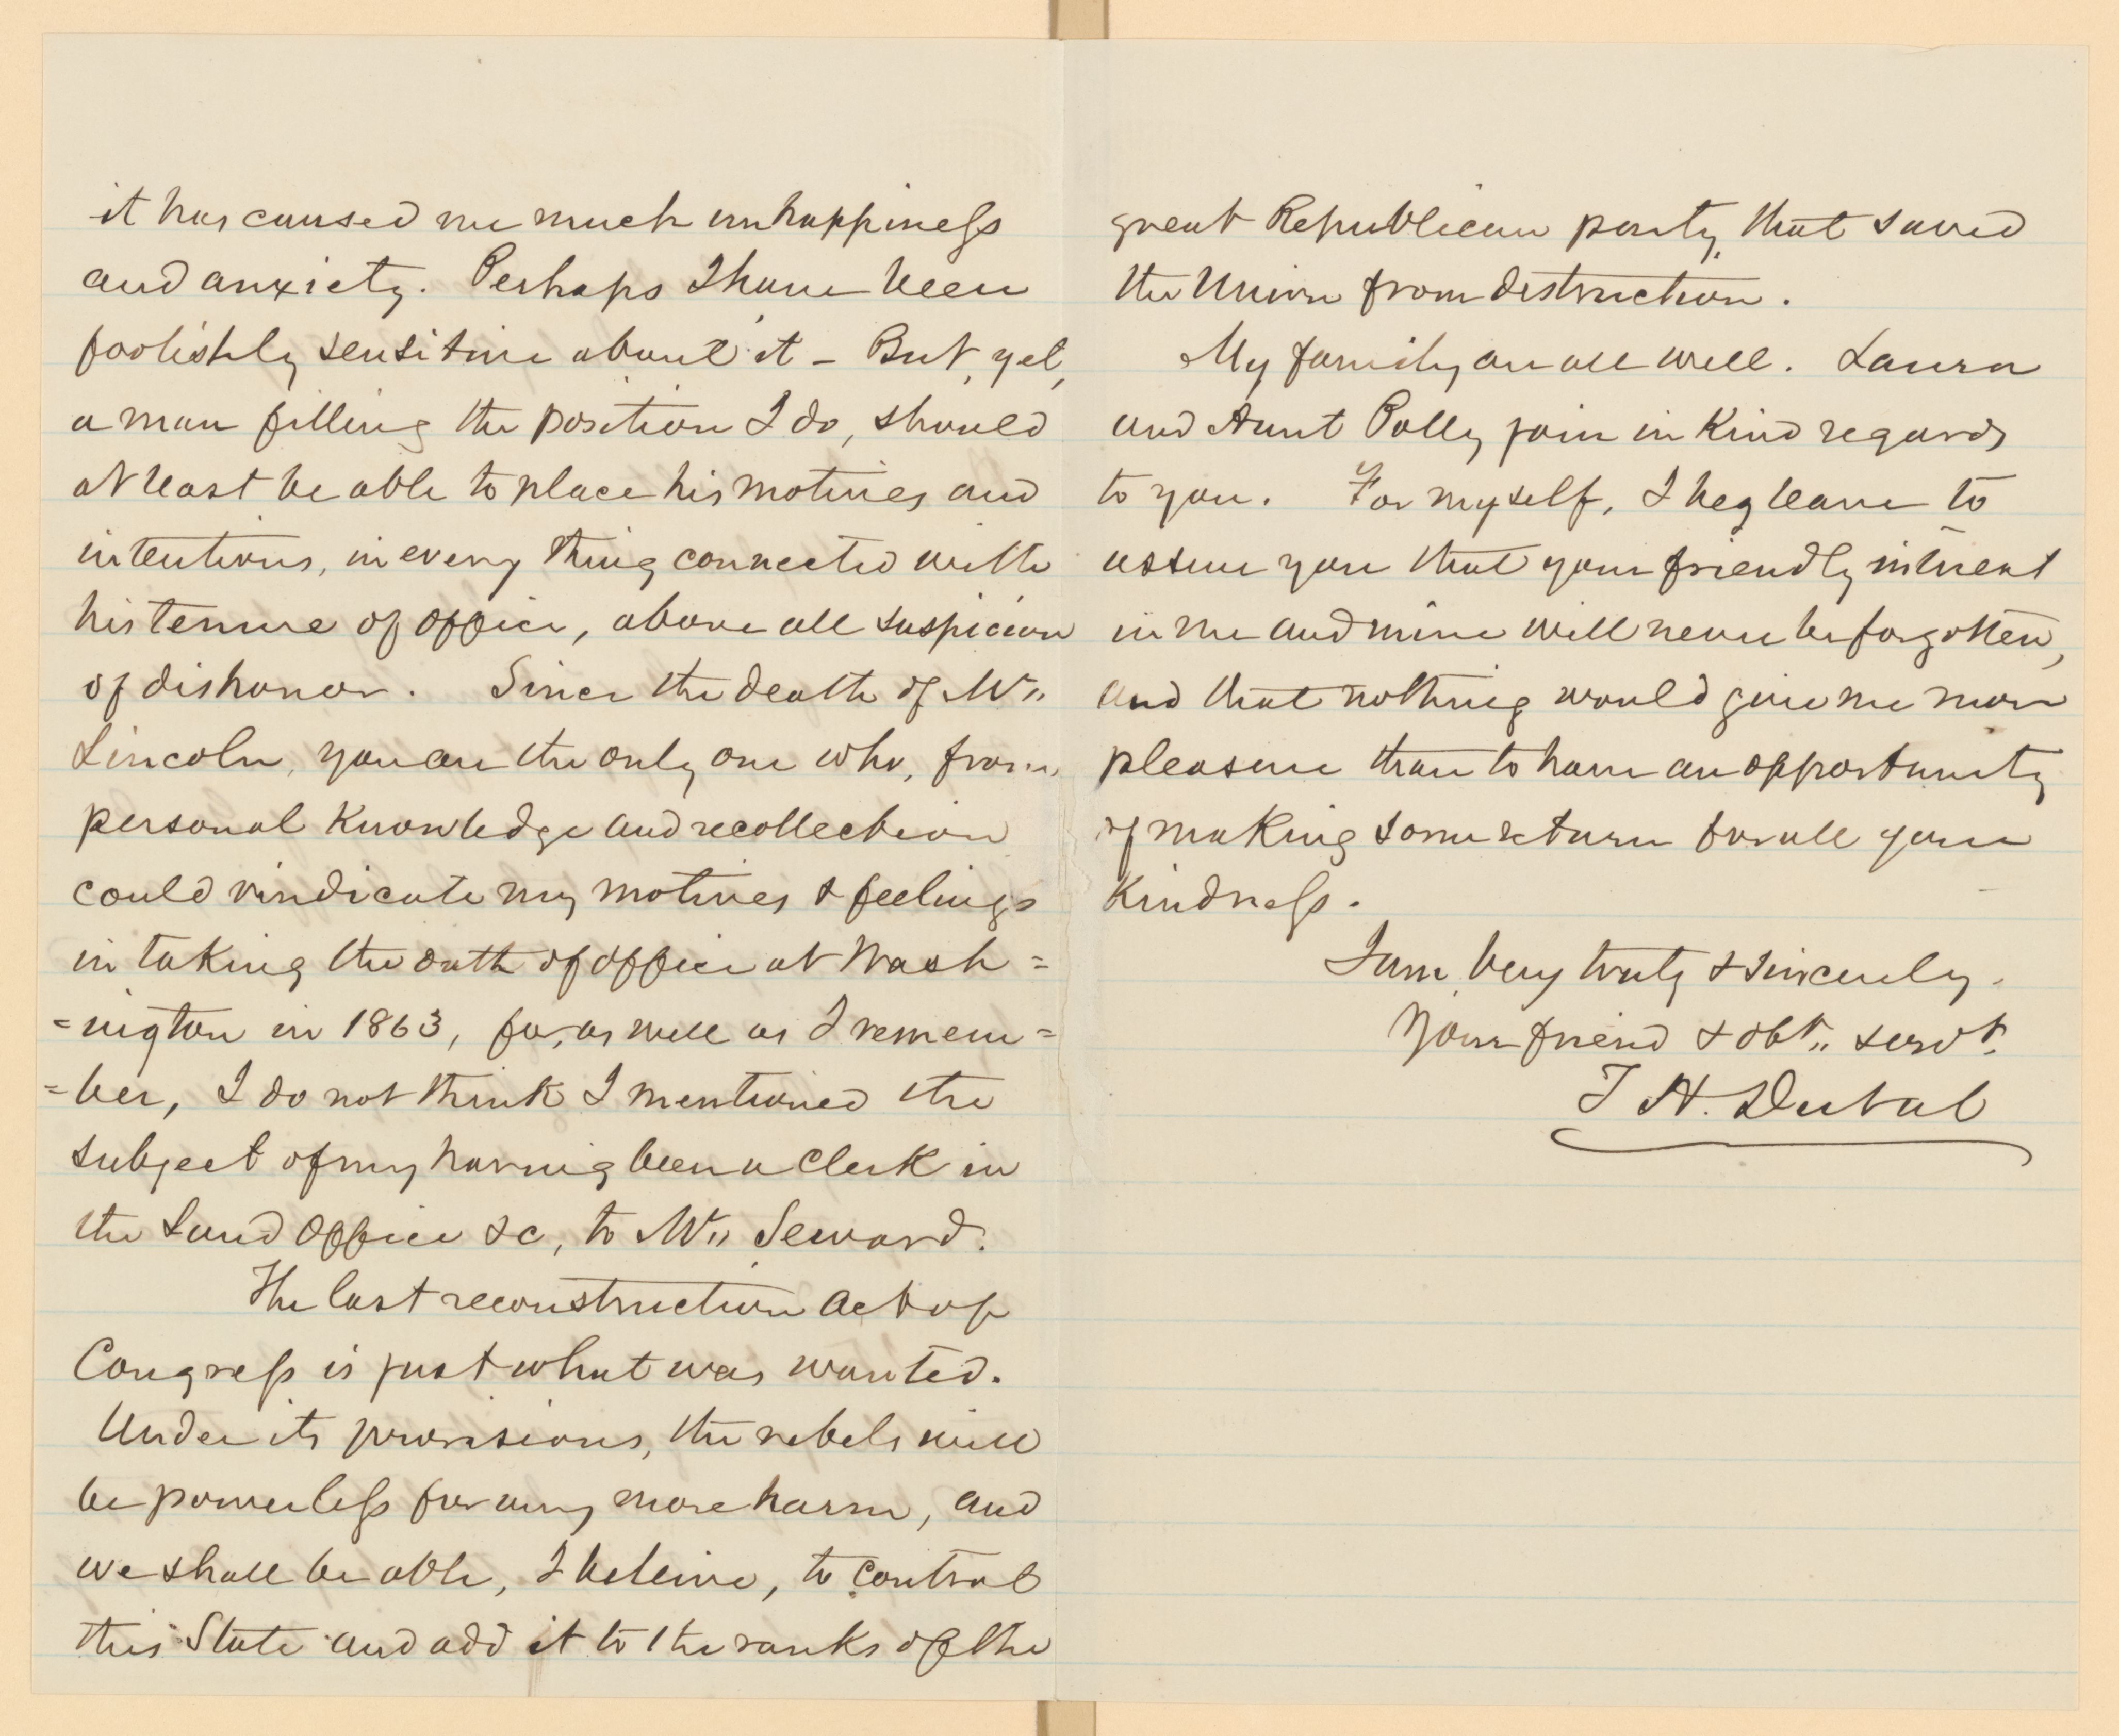 it has caused me much unhappiness
and anxiety. Perhaps I have been
foolishly sensitive about it – But, yet,
a man filling the position I do, should
at least be able to place his motives and
intentions, in every thing connected with
his tenure of office, above all suspicion
of dishonor. Since the death of Mr.
Lincoln, you are the only one who, from
personal knowledge and recollection
could vindicate my motives & feelings
in taking the oath of office at Wash=
=ington in 1863, for, as well as I remem=
=ber, I do not think I mentioned the
subject of my having been a clerk in
the Land Office &c, to Mr. Seward.
The last reconstruction act of
Congress is just what was wanted.
Under its provisions, the rebels will
be powerless for any more harm, and
we shall be able, I believe, to control
this State and add it to the ranks of the
great Republican party, that saved
the Union from destruction.
My family are all well. Laura
and Aunt Polly join in kind regards
to you. For myself, I beg leave to
assure you that your friendly interest
in me and mine will never be forgotten,
and that nothing would give me more
pleasure than to have an opportunity
of making some return for all your
kindness.
I am, very truly & sincerely.
Your friend & obt. servt.
T H. Duval